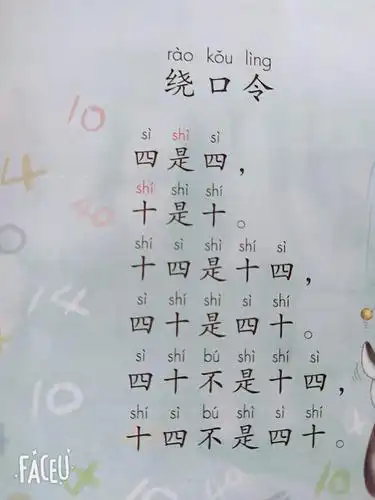 rào kǒu lìng
绕口令
sì shì sì
四是四，
shí shì shí
十是十。
shí sì shì shí sì
十四是十四，
sì shí shì sì shí
四十是四十。
sì shí bú shì shí sì
四十不是十四，
shí sì bú shì sì shí
十四不是四十。
10
4
40
0
14
10
10
FACEU